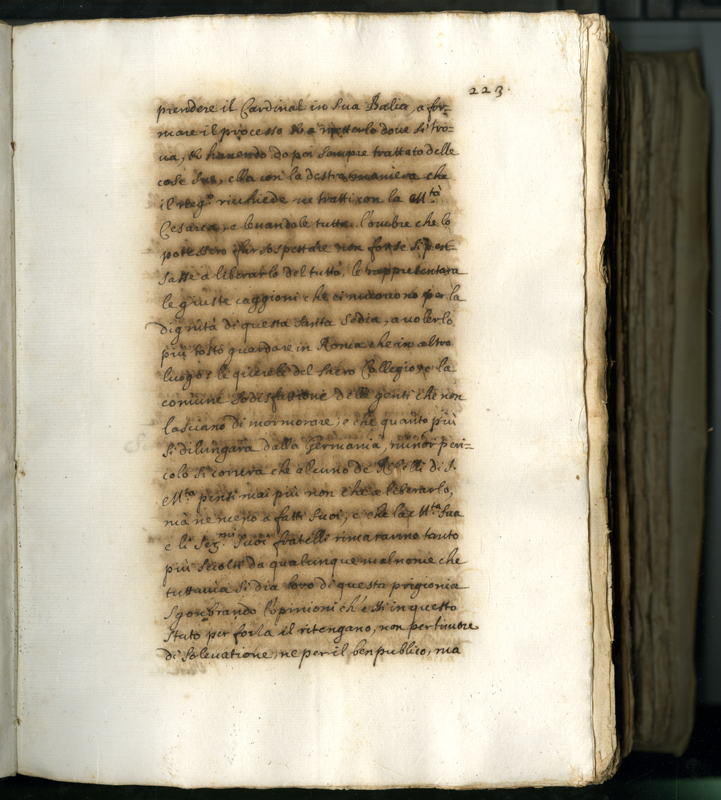 223.
prendere il Cardinal in sua Balia, a for=
mare il processo & a metterlo doue si tro=
ua, & hauendo dopoi sempre trattato delle
cose sue, ella con la destra maniera che
il neg.o richiede ne tratti con la M.tà
Cesarea, e leuandole tutte l'ombre che lo
potessero far sospettare non forse si pen=
sasse a liberarlo del tutto, le rappresentara
le giuste caggioni che ci muouono per la
dignità di questa Santa Sedia, a uolerlo
più tosto guardare in Roma che in altro
luogo: le querele del Sacro Collegio, e la
comune sodisfatione delle genti che non
lasciano di mormorare; e che quanto più
si dilungara dalla Germania, minor peri=
colo si correrà che alcuno de Ribelli di S.
M.ta pensi mai più non che a liberarlo,
mà ne meno a fatti suoi, e che la M.ta Sua
e li Seg.ri suoi fratelli rimaranno tanto
più sciolti da qualunque mal nome che
tuttauia si dia loro di questa prigionia
sgombrando l'opinioni ch'essi in questo
stato per forza il ritengano, non per timore
di soleuatione, ne per il ben publico, ma